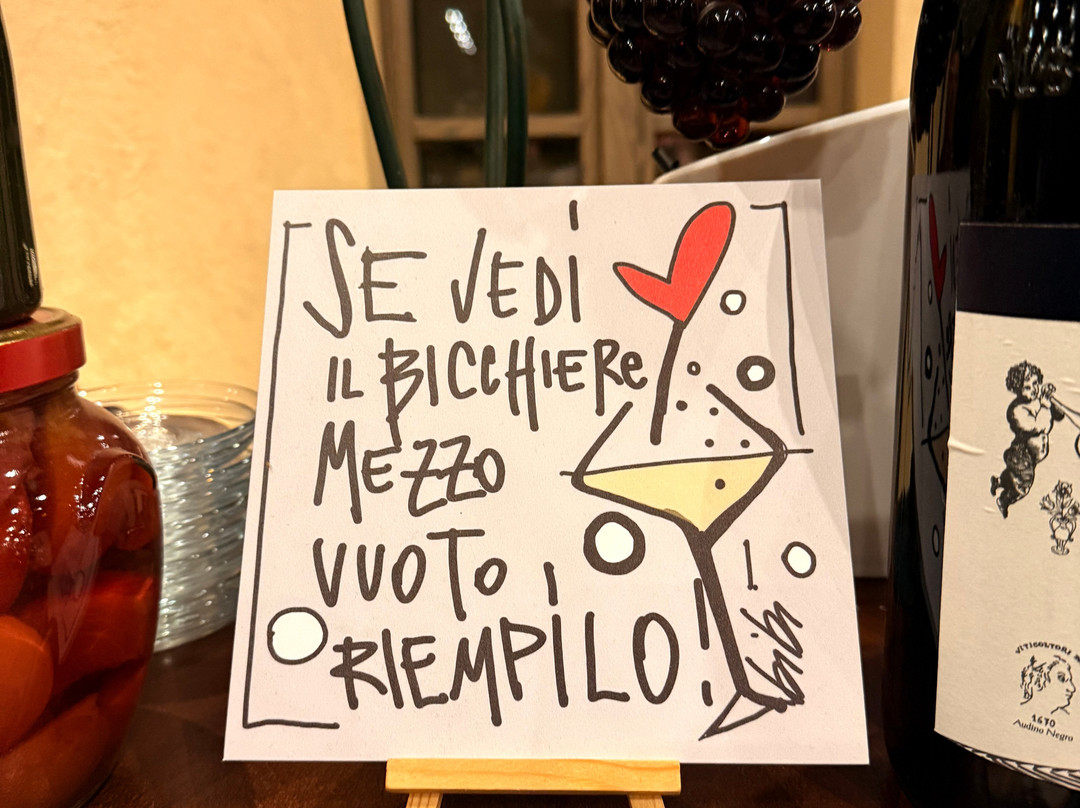 SE VEDI
IL BICCHIERe
MeZZo
VUOTo
RIEMPILO!
bibi
VITICOLTORI
1670
Audino Negro